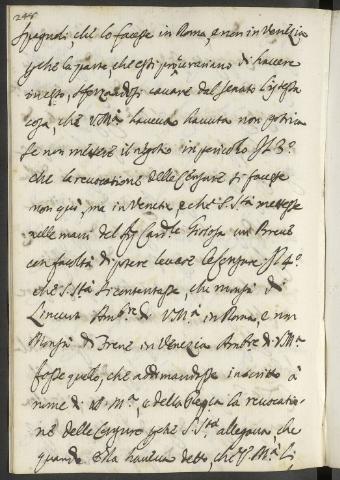 248
Spagnoli, che lo facesse in Roma, e non in Venezia
che la parte, che essi procuravano di havere
in esso, sforzandosi cavare dal senato l'istessa
cosa, che V. Mtà haveva havuta non potria
se non mettere il negotio in pericolo. Il 3º
che la revocatione delle Censure si facesse
non qui, ma in Venetia, e che S. Stà mettesse
nelle mani del Sr Cardle Gioiosa un Breve
con facoltà di potere levare le censure. Il 4º
che S. Stà si contentasse, che monsr di
Lincurt Ambre di V. Mtà in Roma, e non
Monsr di Frene in Venezia Ambre di V. Mtà
fosse quello, che adimandasse in scritto à
nome di V. Mtà, e della Regia la revocatio-
ne delle Censure che S. Stà allegava, che
quando ella haveva detto, che V. Mtà li